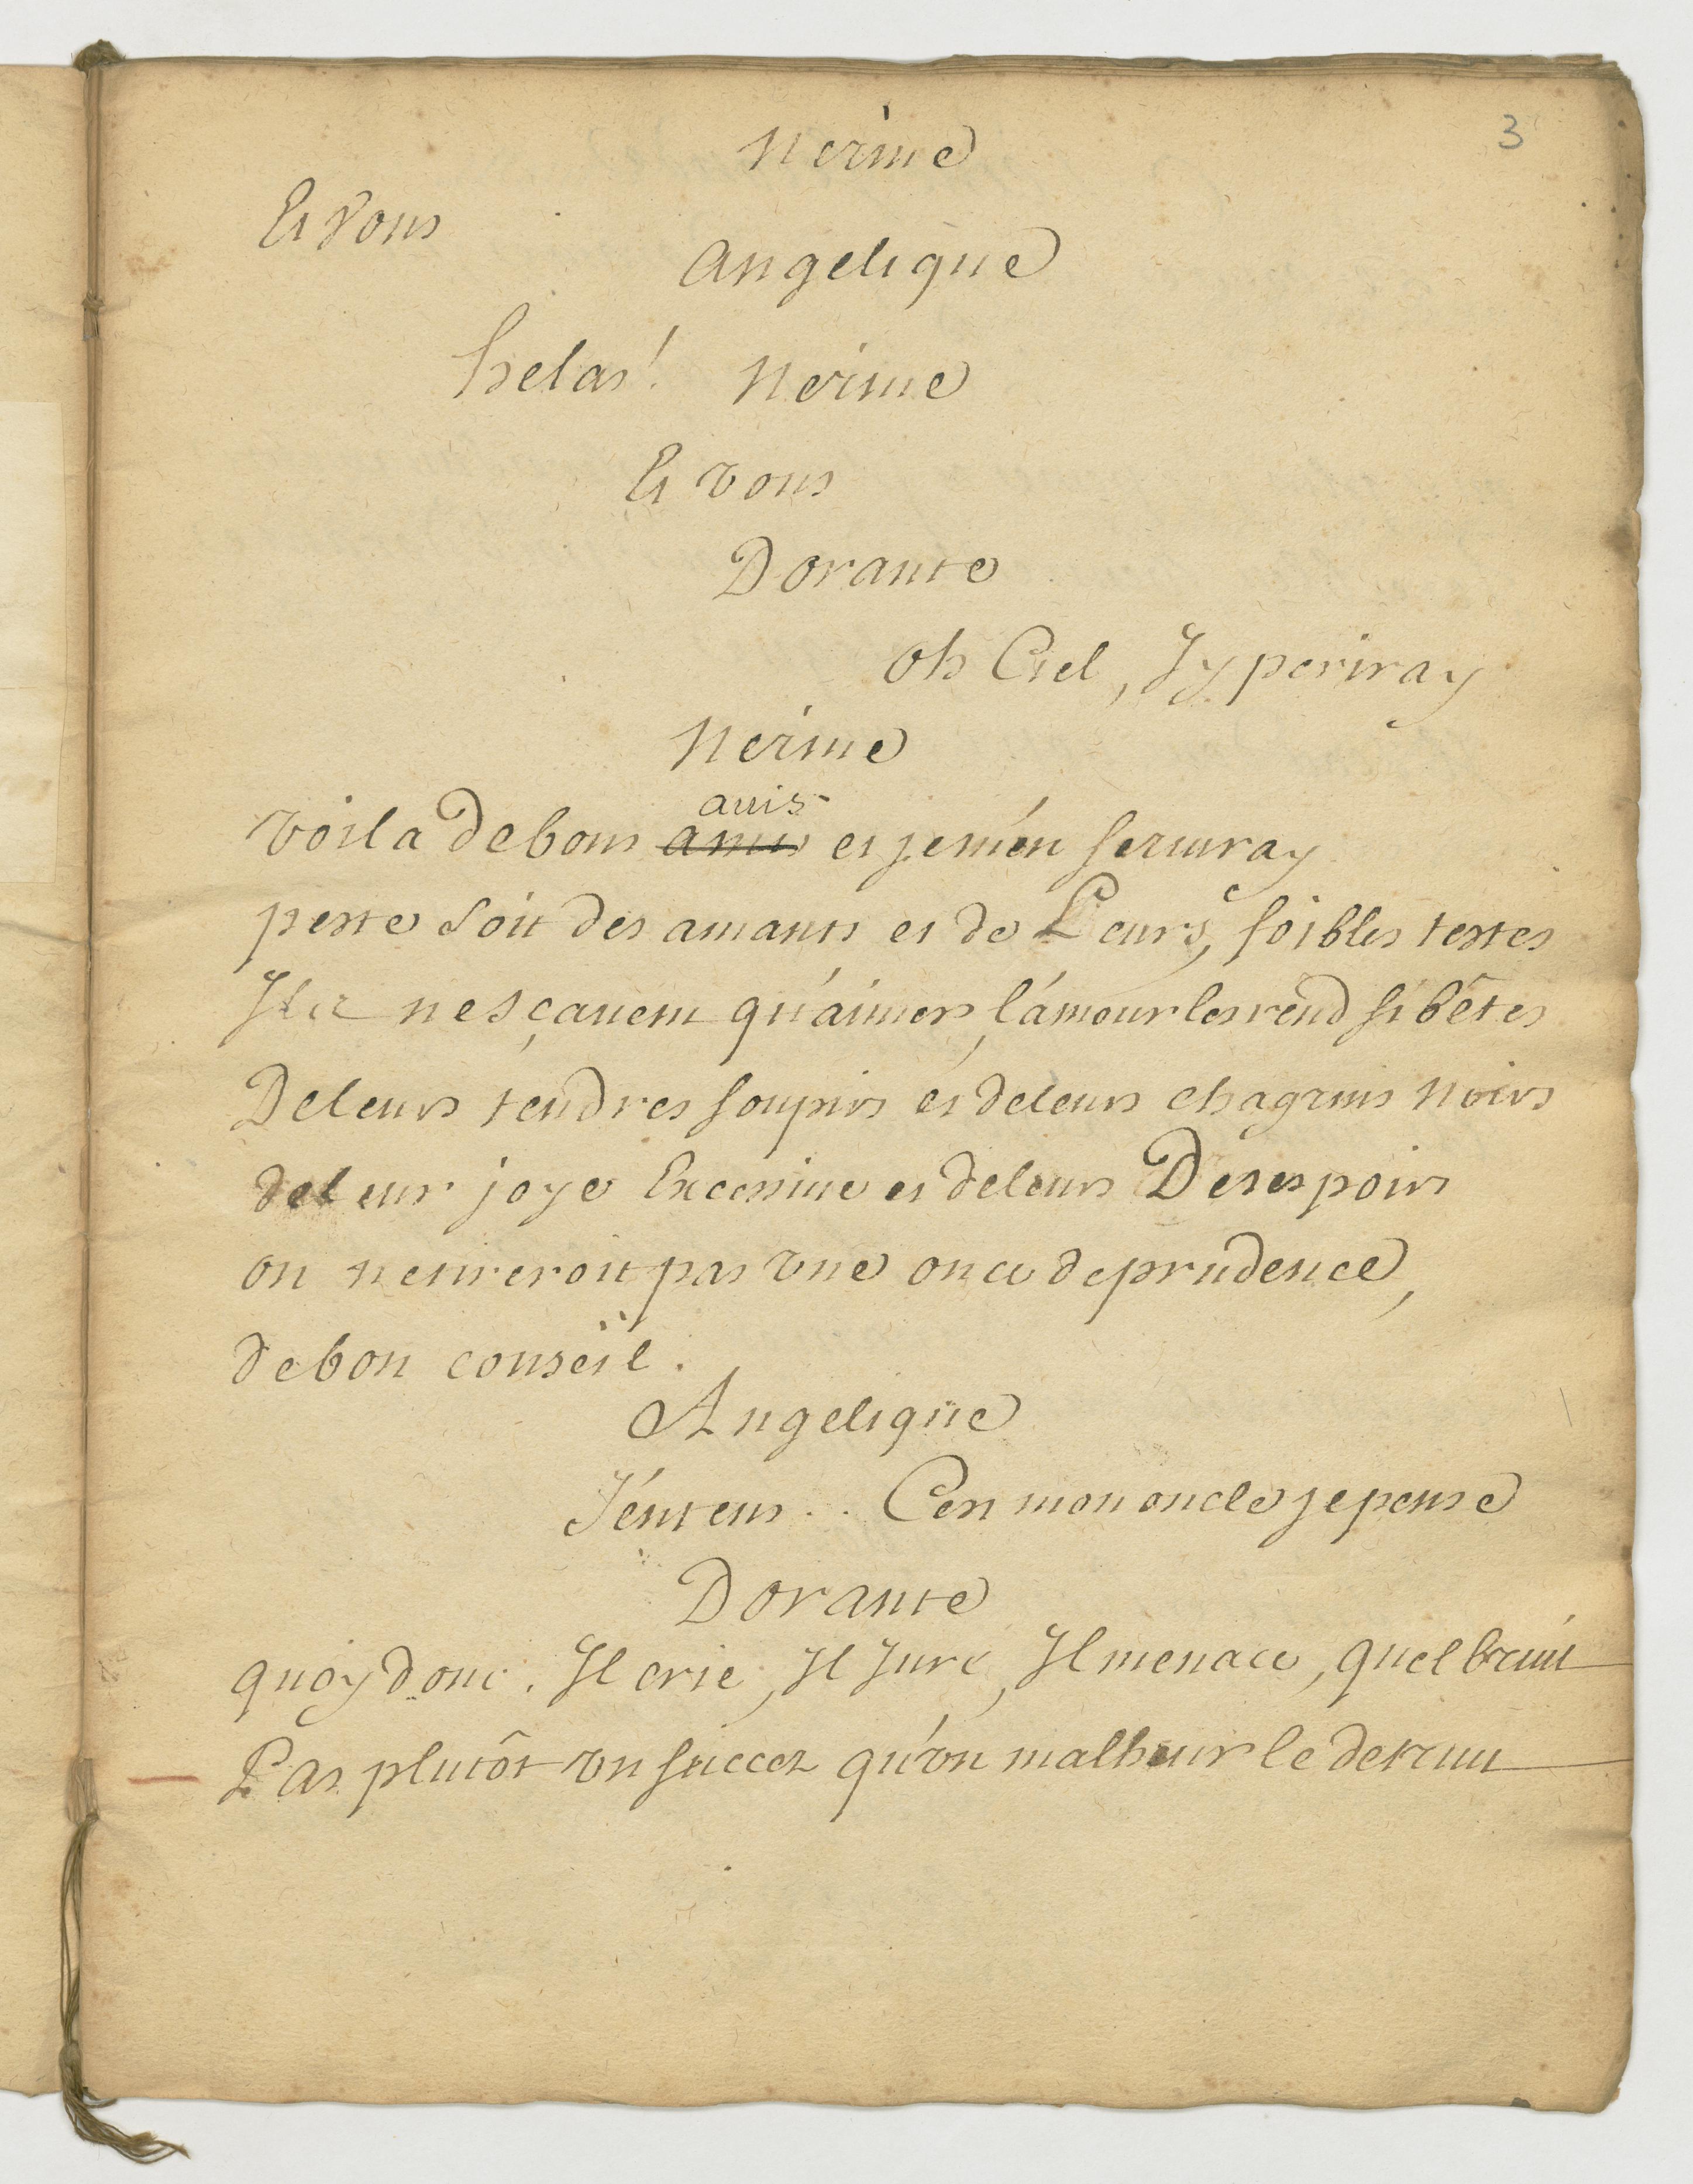 3
Nerine
Et Vous
Angelique
helas!
Nerine
Et vous
Dorante
oh Ciel, Jy periray
Nerine
avis
voila de bons amis et je m'en serviray
peste soit des amants et de Leurs, foibles testes
Ils ne sçavent qu'aimer, l'amour les rend si bêtes
De leurs tendres soupirs et de leurs chagrins Noirs
de leur joye Excessive et de leurs Desespoirs
on n'entireroit pas une once de prudence,
de bon conseïl.
Angelique
J'entens.. C'est mon oncle je pense
Dorante
quoy donc. Il crie, Il Jure, Il menace, quel bruit
Pas plutôt un succez qu'un malheur le detruit